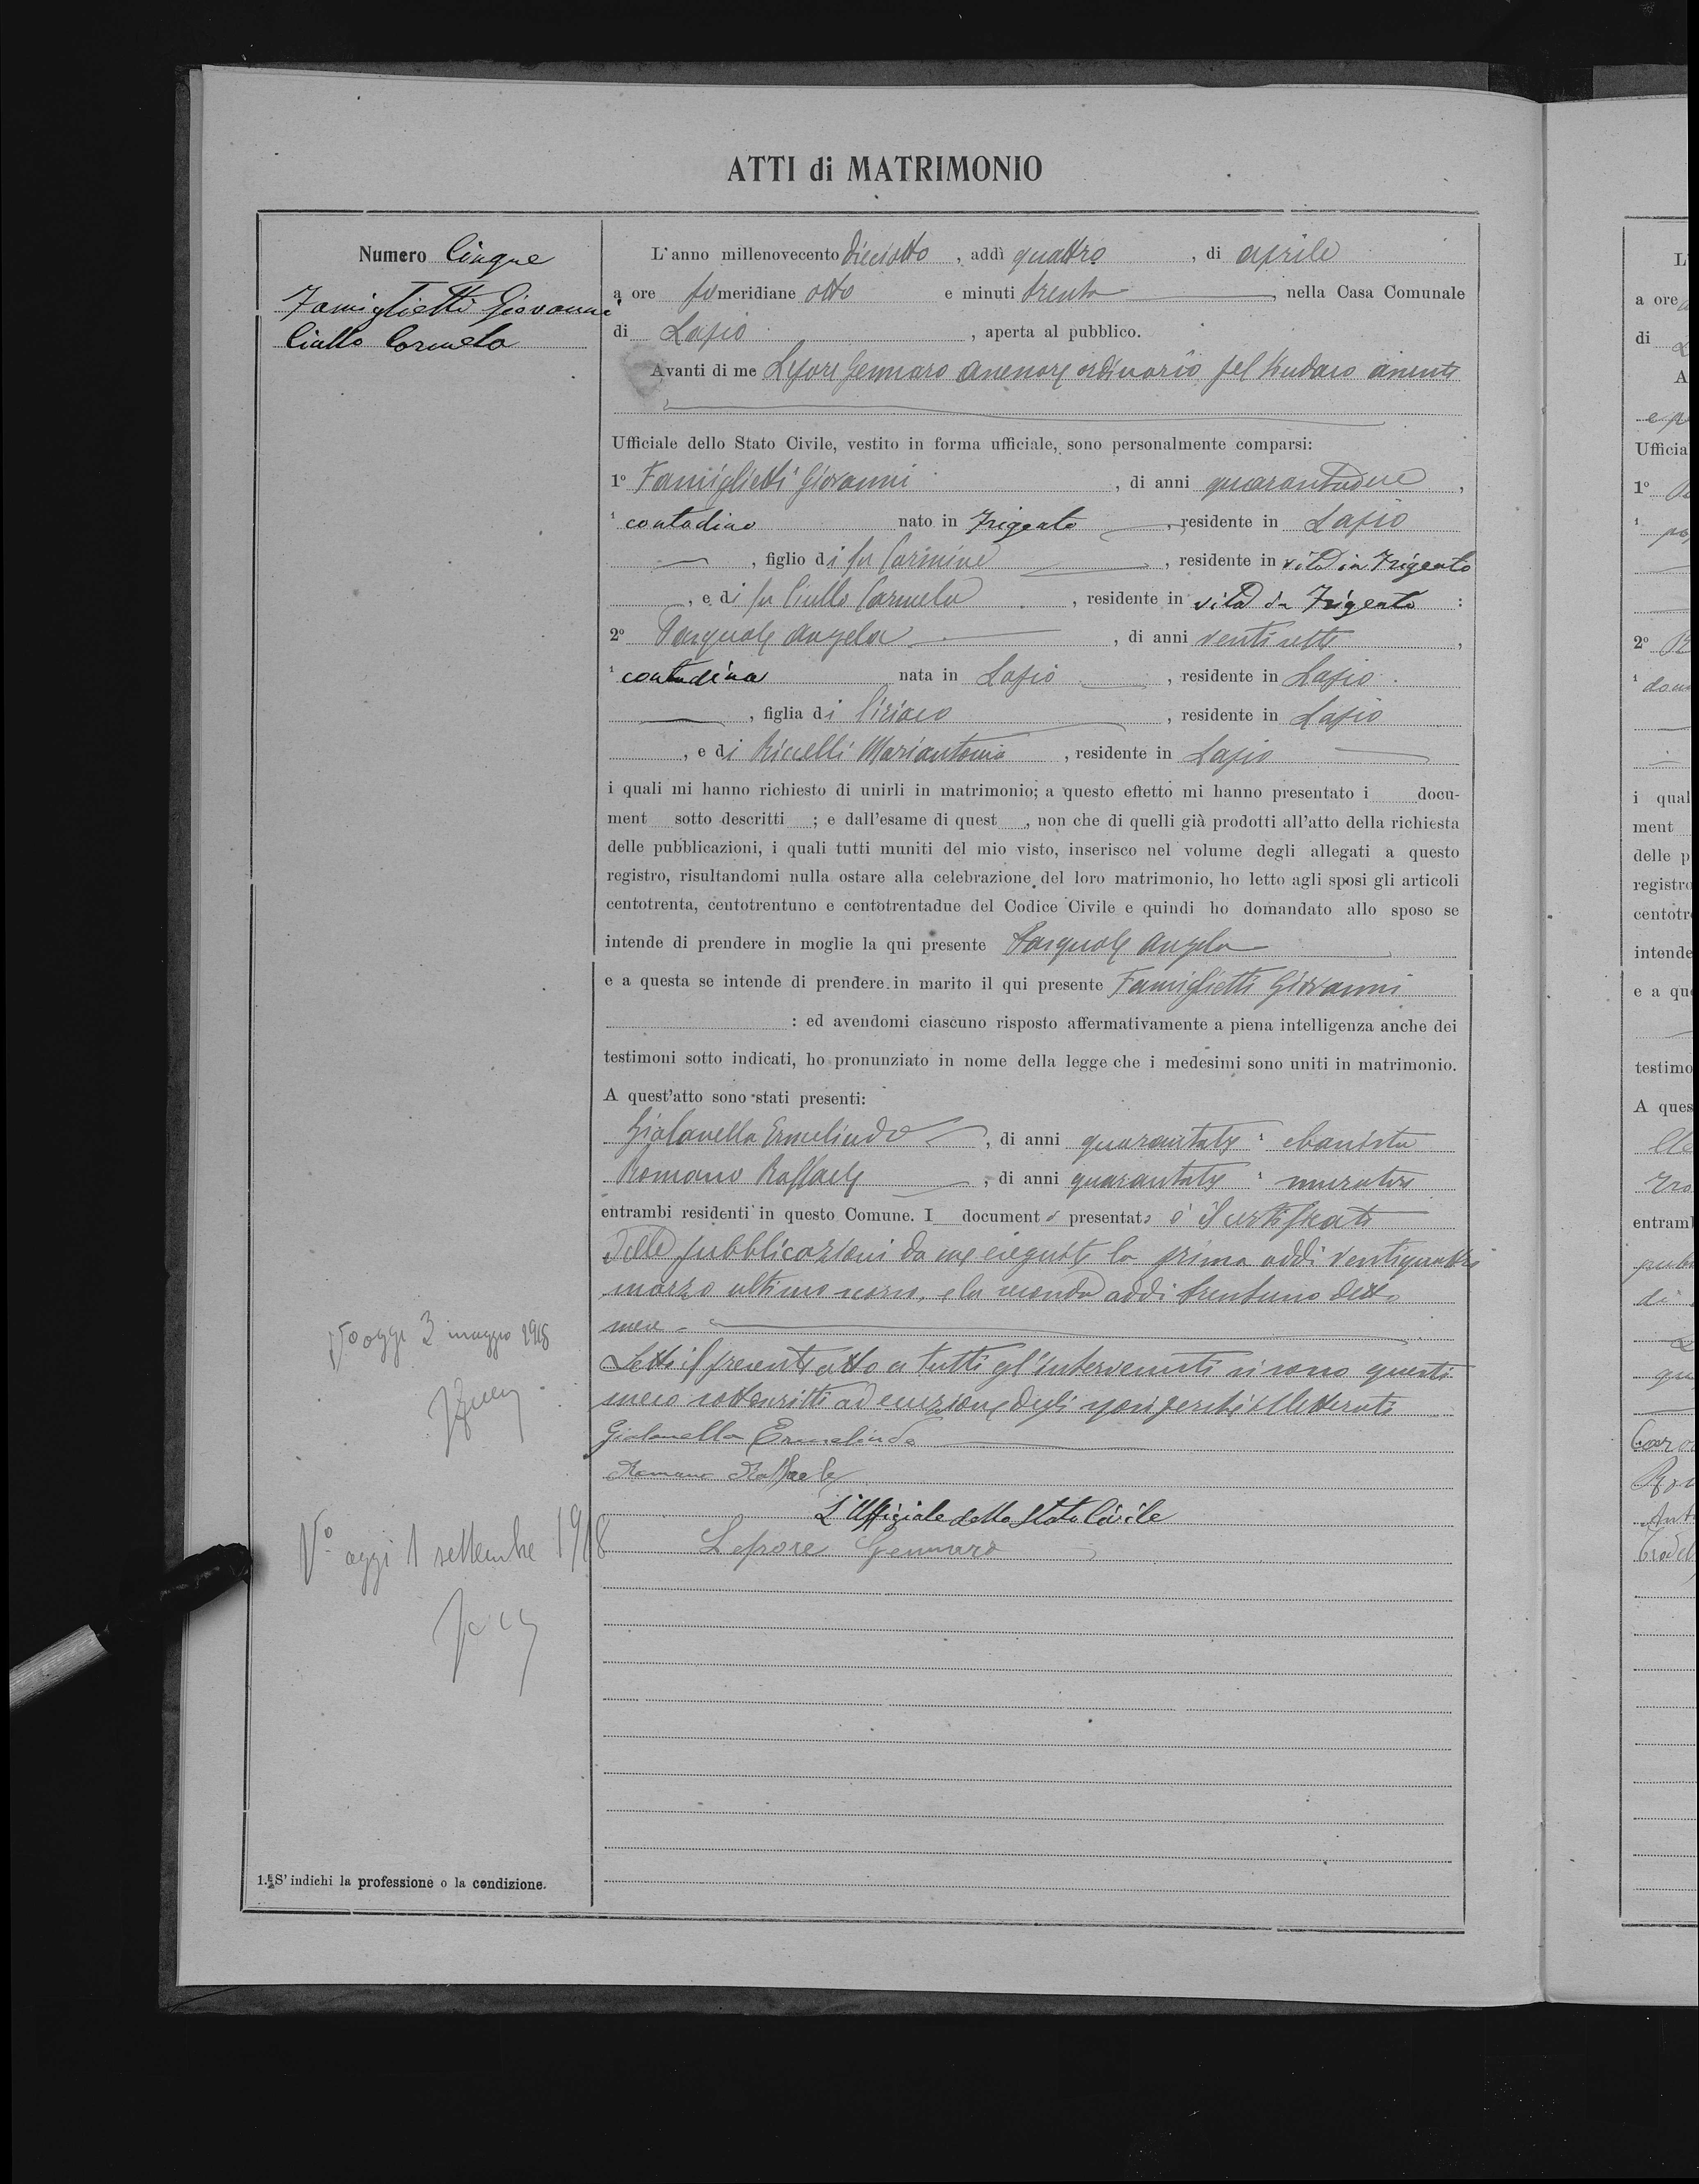 ATTI di MATRIMONIO
Numero Cinque
Famiglietti Giovanni
Ciullo Carmela
L'anno millenovecento diciotto, addì quattro, di aprile
a ore pomeridiane otto e minuti trenta, nella Casa Comunale
di Lapio, aperta al pubblico.
Avanti di me Lepore Gennaro assessore ordinario pel Sindaco assente
Ufficiale dello Stato Civile, vestito in forma ufficiale, sono personalmente comparsi:
1º Famiglietti Giovanni, di anni quarantadue,
1 contadino nato in Frigento, residente in Lapio
, figlio di fu Carmine, residente in vita in Frigento
, e di fu Ciullo Carmela, residente in vita in Frigento :
2º Pasquale Angela, di anni ventisette,
1 contadina nata in Lapio, residente in Lapio
, figlia di Ciriaco, residente in Lapio
, e di Riccelli Mariantonia, residente in Lapio
i quali mi hanno richiesto di unirli in matrimonio; a questo effetto mi hanno presentato i docu-
ment sotto descritti ; e dall'esame di quest , non che di quelli già prodotti all'atto della richiesta
delle pubblicazioni, i quali tutti muniti del mio visto, inserisco nel volume degli allegati a questo
registro, risultandomi nulla ostare alla celebrazione del loro matrimonio, ho letto agli sposi gli articoli
centotrenta, centotrentuno e centotrentadue del Codice Civile e quindi ho domandato allo sposo se
intende di prendere in moglie la qui presente Pasquale Angela
e a questa se intende di prendere in marito il qui presente Famiglietti Giovanni
: ed avendomi ciascuno risposto affermativamente a piena intelligenza anche dei
testimoni sotto indicati, ho pronunziato in nome della legge che i medesimi sono uniti in matrimonio.
A quest'atto sono stati presenti:
Gialanella Ermelindo, di anni quarantatre 1 ebanista
Romano Raffaele, di anni quarantatre 1 muratore
entrambi residenti in questo Comune. I document o presentato è il certificato
delle pubblicazioni da me eseguite la prima addì ventiquattro
marzo ultimo scorso, e la seconda addì trentuno detto
mese.
Letto il presente atto a tutti gl'intervenuti si sono questi
meco sottoscritti ad eccezione degli sposi perchè illetterati
Gialanella Ermelindo
Romano Raffaele
L'Uffiziale dello Stato Civile
Lepore Gennaro
Vº oggi 3 maggio 1918
Vº oggi 1 settembre 1918
1. S'indichi la professione o la condizione.
L'
a ore
di
A
Ufficia
1º
1
2º
1
i qual
ment
delle p
registro
centotr
intende
e a que
testimo
A ques
entram